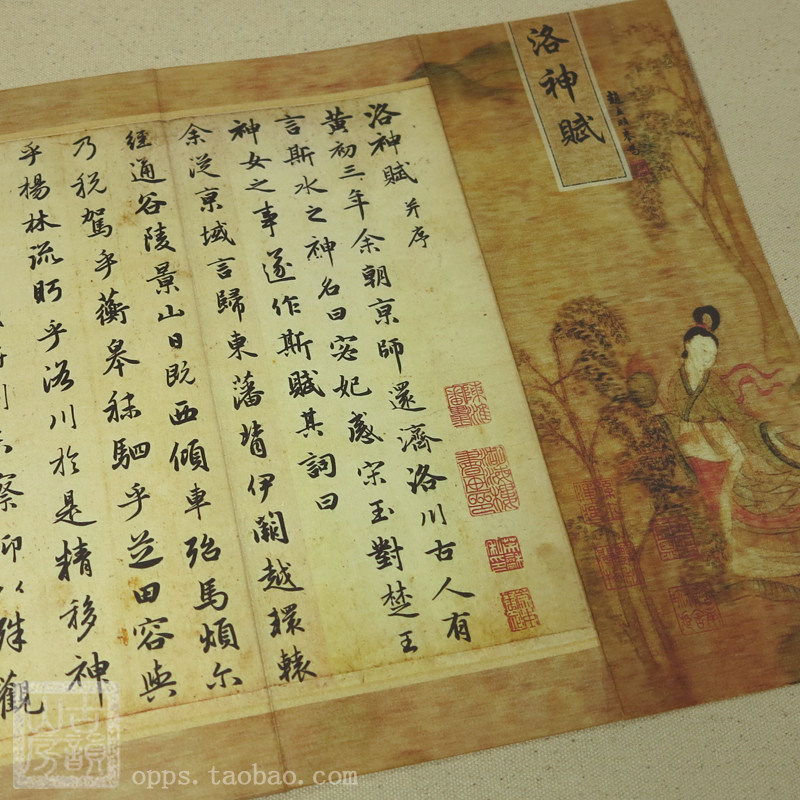 洛神賦
洛神賦 并序
黄初三年余朝京師還濟洛川古人有
言斯水之神名曰宓妃感宋玉對楚王
神女之事遂作斯賦其詞曰
余從京域言歸東藩背伊闕越轘轅
經通谷陵景山日既西傾車殆馬煩尔
乃税駕乎蘅皋秣駟乎芝田容與
乎楊林流眄乎洛川於是精移神
則未察仰以殊觀
古韻山房
opps.taobao.com